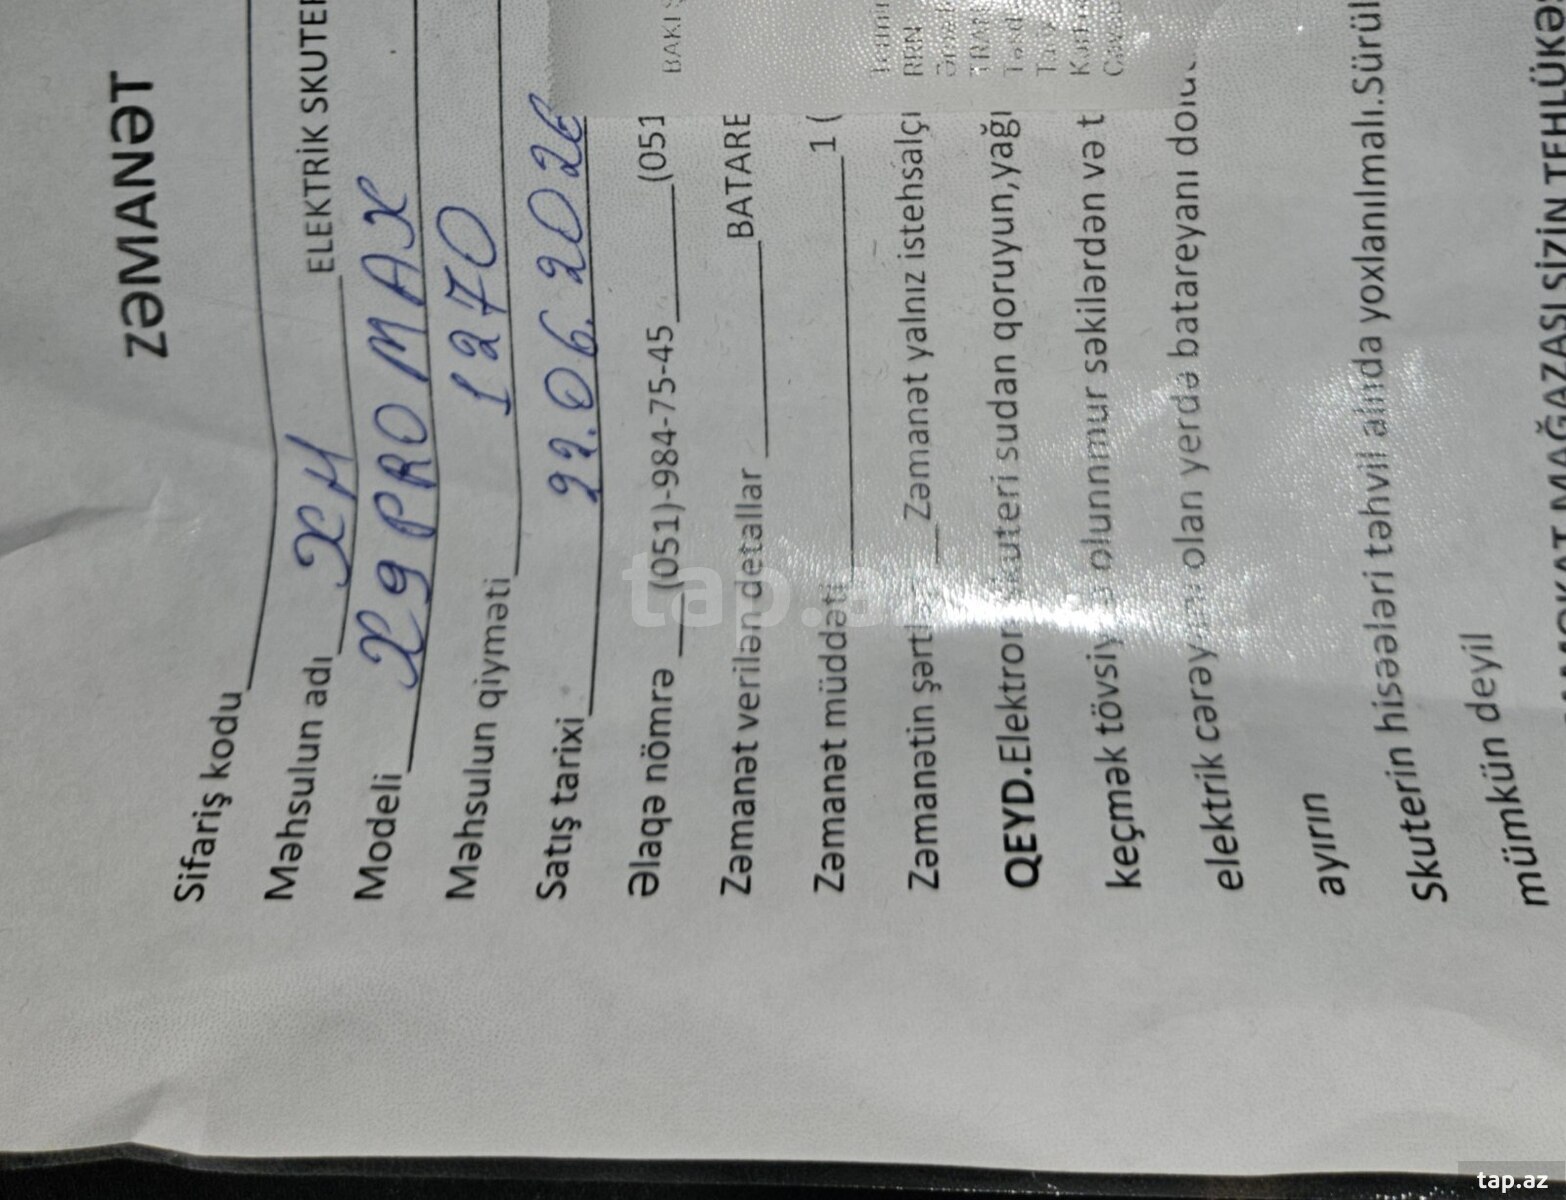 ZƏMANƏT
Sifariş kodu
Məhsulun adı XH ELEKTRİK SKUTER
Modeli X9 PRO MAX
Məhsulun qiyməti 1270
Satış tarixi 22.06.2026
Əlaqə nömrə (051)-984-75-45 (051
Zəmanət verilən detallar BATARE
Zəmanət müddəti 1 (
Zəmanətin Zəmanət yalnız istehsalçı
QEYD.Elektron skuteri sudan qoruyun,yağı
keçmək tövsiyə olunmur səkilərdən və t
elektrik cərəyanı olan yerdə batareyanı
ayırın
Skuterin hisəələri təhvil alında yoxlanılmalı.Sürül
mümkün deyil
MAĞAZASI SİZİN TEHLÜKƏ
BAKI
RRN
tap.az
tap.az